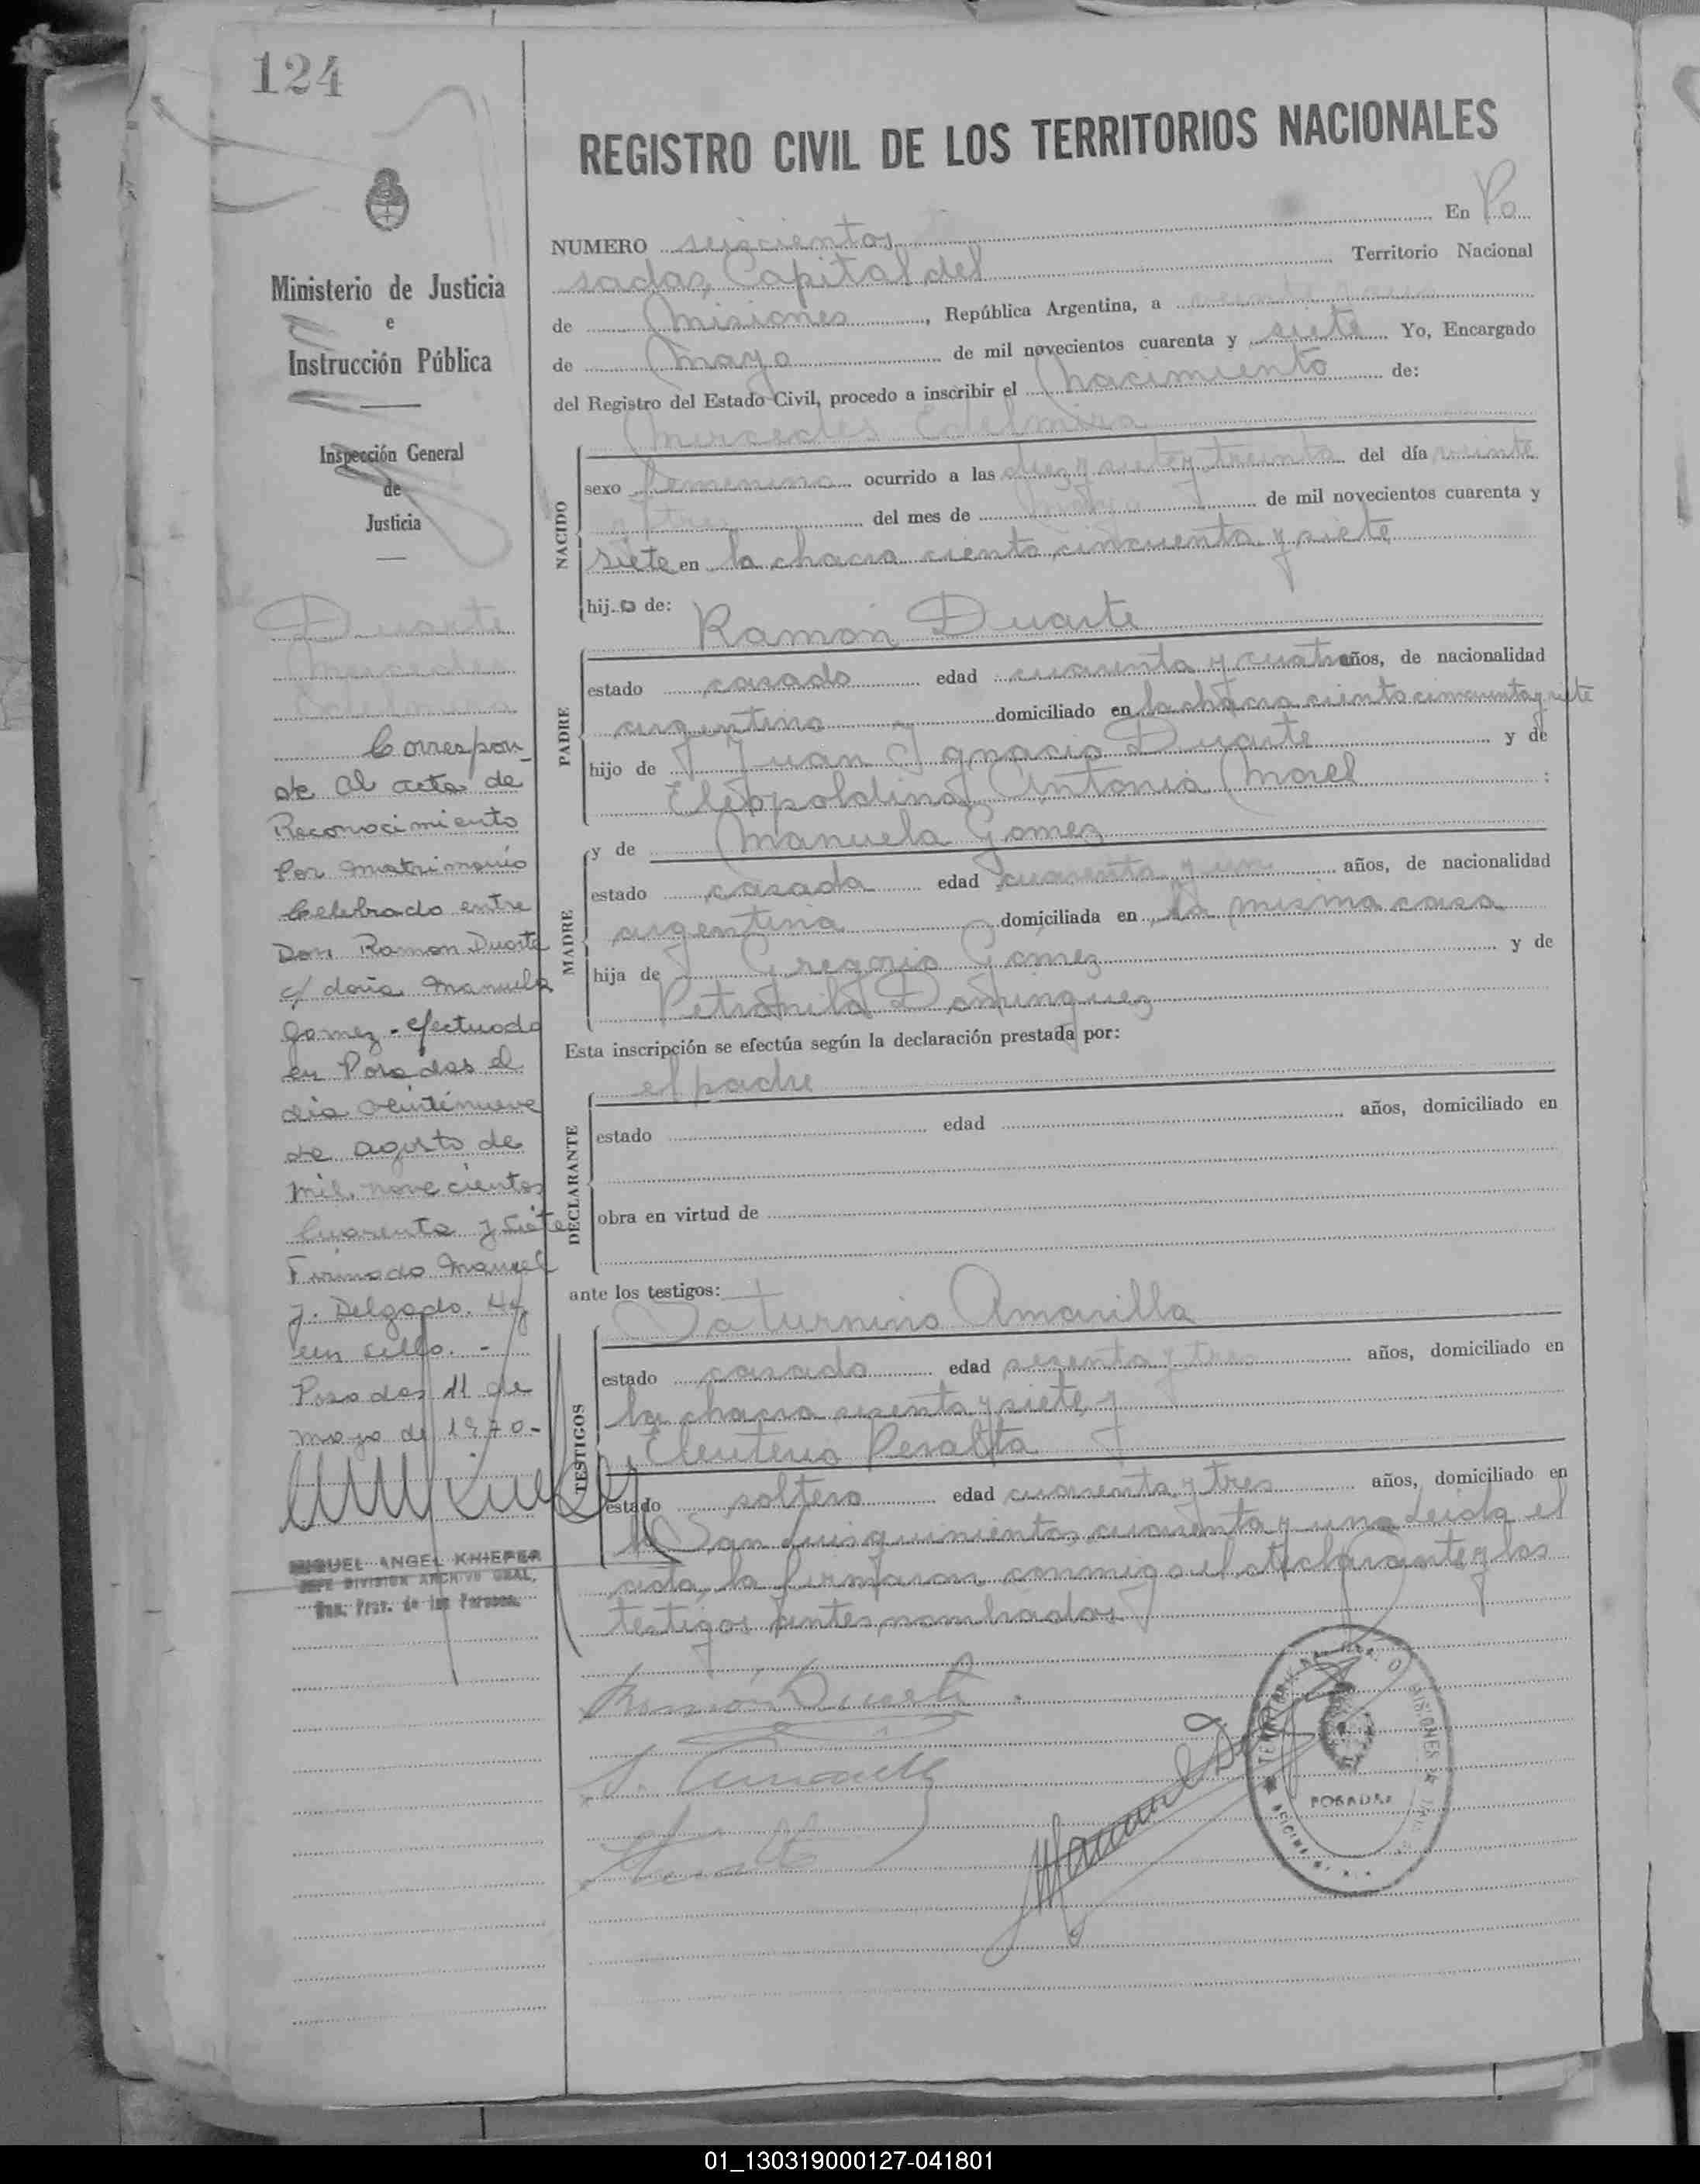 124
REGISTRO CIVIL DE LOS TERRITORIOS NACIONALES
Ministerio de Justicia
e
Instrucción Pública
Inspección General
de
Justicia
NUMERO seiscientos En Po
sadas, Capital del Territorio Nacional
de Misiones, República Argentina, a
de Mayo de mil novecientos cuarenta y siete Yo, Encargado
del Registro del Estado Civil, procedo a inscribir el nacimiento de:
Mercedes Edelmira
NACIDO
sexo femenino ocurrido a las diez y siete y treinta del día veinte
y tres del mes de de mil novecientos cuarenta y
siete en la chacra ciento cincuenta y siete
hija de:
Ramon Duarte
PADRE
estado casado edad cuarenta y cuatro años, de nacionalidad
argentino domiciliado en la chacra ciento cincuenta y siete
hijo de Juan Ygnacio Duarte y de
Eleopoldina Antonia Morel ;
MADRE
y de Manuela Gomez
estado casada edad cuarenta y un años, de nacionalidad
argentina domiciliada en la misma casa
hija de Gregorio Gomez y de
Petronila Dominguez
Esta inscripción se efectúa según la declaración prestada por:
el padre
DECLARANTE
estado edad años, domiciliado en
obra en virtud de
ante los testigos:
Saturnino Amarilla
TESTIGOS
estado casado edad sesenta y tres años, domiciliado en
la chacra sesenta y siete y
Eleuterio Peralta
estado soltero edad cuarenta y tres años, domiciliado en
San Luis quinientos cuarenta y uno Leida el
acta, la firmaron conmigo el declarante y los
testigos antes nombrados
Ramón Duarte
Duarte
Mercedes
Edelmira
Correspon
de al acta de
Reconocimiento
Por matrimonio
Celebrado entre
Don Ramon Duarte
c/ doña Manuela
Gomez - efectuado
en Posadas el
dia veintinueve
de agosto de
mil novecientos
Cuarenta y siete
Firmado Manuel
J. Delgado. Hay
un sello. -
Posadas 11 de
mayo de 1970-
MIGUEL ANGEL KHIEFER
JEFE DIVISION ARCHIVO GRAL.
MISIONES
POSADAS
01_130319000127-041801